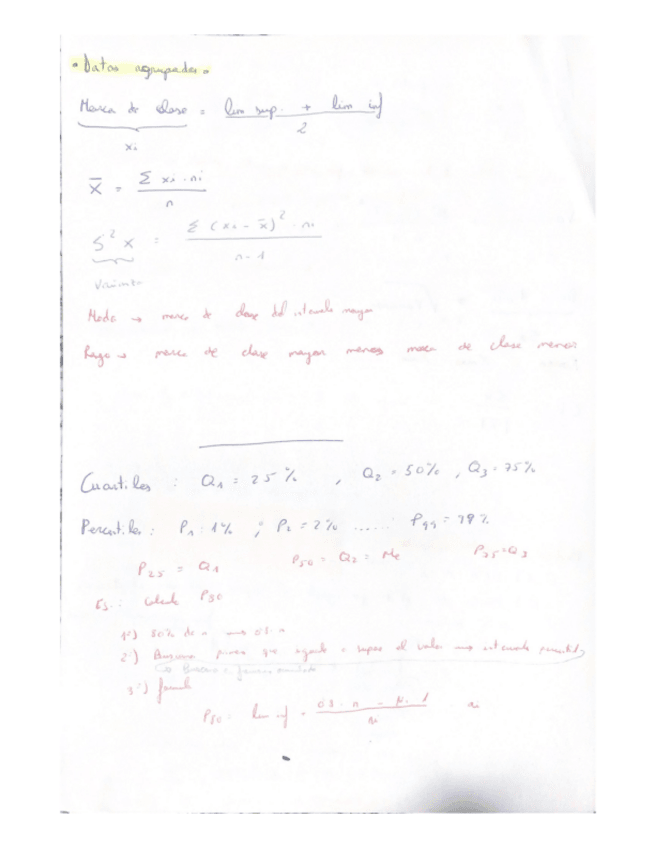 • Datos agrupados •
Marca de clase = lim sup. + lim inf
2
xi
x̄ = Σ xi · ni
n
S²x = Σ (xi - x̄)² · ni
n - 1
Varianza
Moda → marca de clase del intervalo mayor
Rago → marca de clase mayor menos marca de clase menor
Cuartiles : Q1 = 25 % , Q2 = 50% , Q3 = 75%
Percentiles : P1 : 1% ; P2 = 2% ...... P99 = 99 %
P25 = Q1 P50 = Q2 = Me P75 = Q3
Ej.: Calcula P30
1º)
2º) Buscamos que iguale o supere el valor → intervalo
→ Buscar
3º)
lim inf